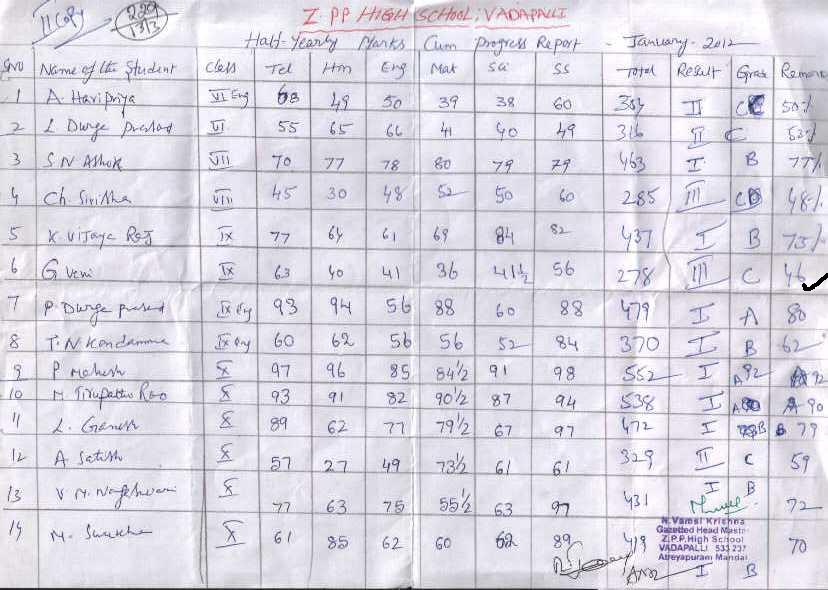 II Copy
229
13/3
Z.PP HIGH SCHOOL; VADAPALLI
Half-Yearly Marks Cum Progress Report - January-2012
SNO Name of the Student Class Tel Hin Eng Mat Sci SS Total Result Grade Remark
1 A. Haripriya VI Eng 68 49 50 39 38 60 II C 50%
2 L. Durga prasad VI 55 65 66 41 40 49 316 II C 53%
3 S N Ashok VII 70 77 78 80 79 79 463 I B 77%
4 Ch. Sirisha VIII 45 30 48 52 50 60 285 III C 48%
5 K. Vijaya Raj IX 77 64 61 69 84 82 437 I B 73%
6 G Veni IX 63 40 41 36 41½ 56 278 III C 46
7 P. Durga prasad IX Eng 93 94 56 88 60 88 479 I A 80
8 T. N Kondamma IX Eng 60 62 56 56 52 84 370 I B 62
9 P Mahesh X 97 96 85 84½ 91 98 552 I A 92 A 92
10 M. Tirupathi Rao X 93 91 82 90½ 87 94 538 I A A-90
11 L. Ganesh X 89 62 77 79½ 67 97 472 I B B 79
12 A Satish X 57 27 49 73½ 61 61 329 II C 59
13 V M. Nageshwari X 77 63 75 55½ 63 97 431 I B 72
14 M. X 61 85 62 60 62 89 419 I B 70
N.Vamsi Krishna
Gazetted Head Mastr
Z.P.P.High School
VADAPALLI 533 237
Atreyapuram Mandal